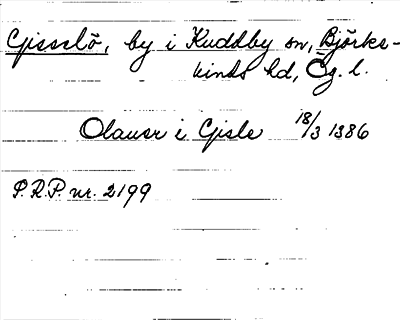 Gisselö, by i Kuddby sn, Björke-
kinds hd, Ög. l.
Olauer i Gisle 18/3 1386
P.R.P. nr. 2199